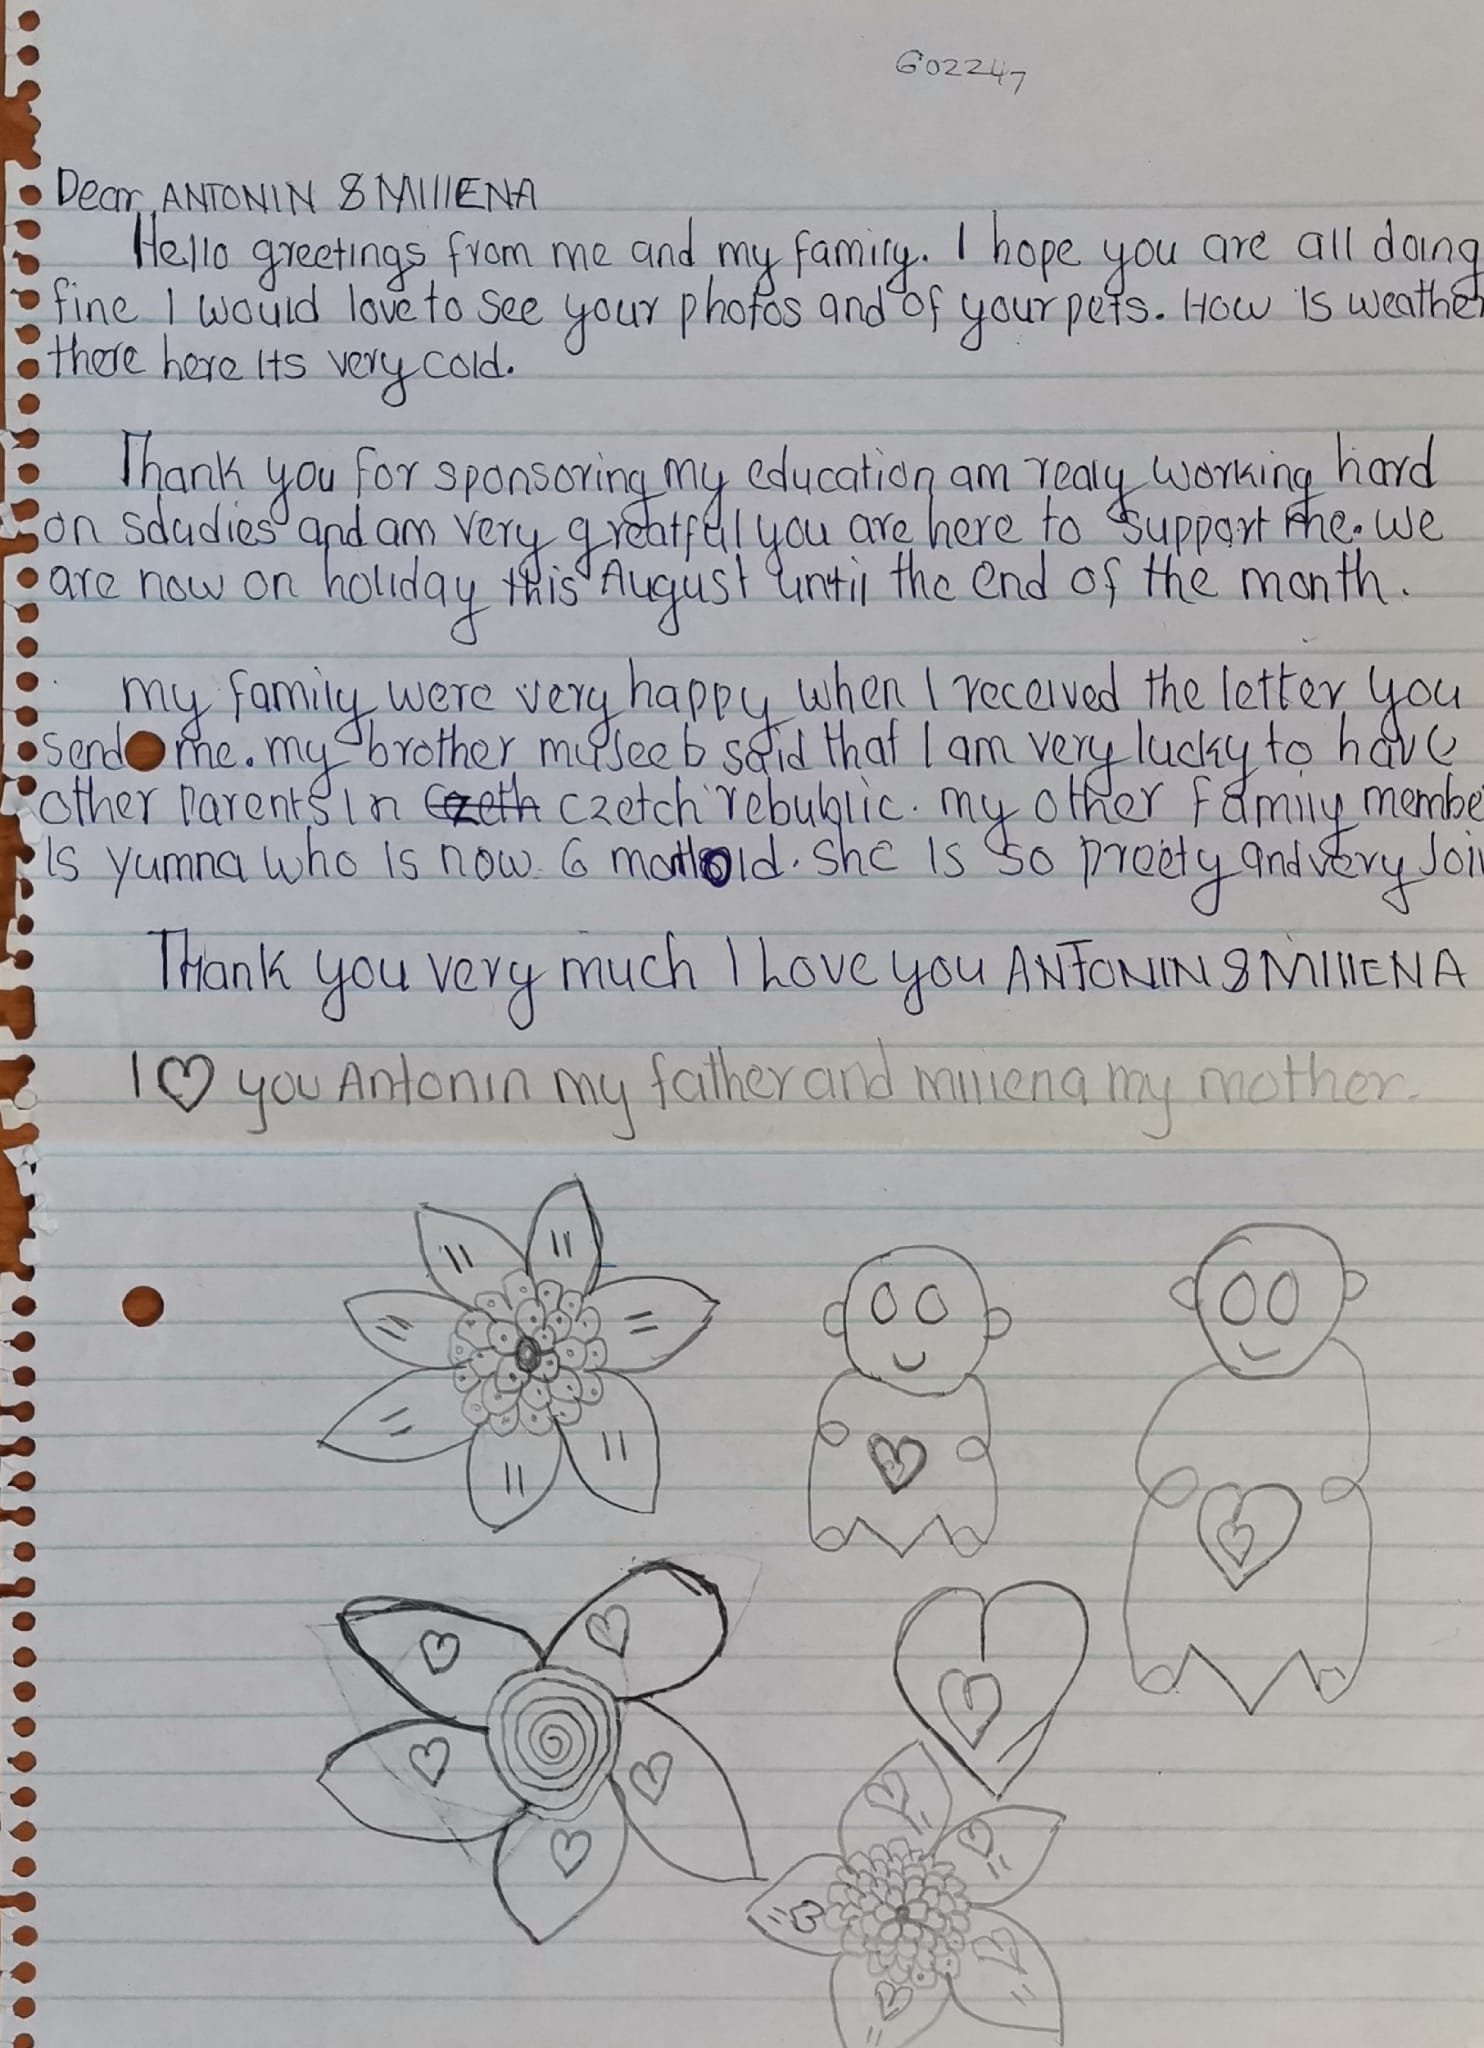 G02247
Dear ANTONIN & MIllENA
Hello greetings from me and my family. I hope you are all doing
fine I would love to see your photos and of your pets. How is weather
there here Its very cold.
Thank you for sponsoring my education am realy working hard
on sdudies and am very greatful you are here to support me. we
are now on holiday this August until the end of the month.
my family were very happy when I received the letter you
send me. my brother museeb said that I am very lucky to have
other parents in Czeth czetch rebublic. my other family membe
Is yumna who is now 6 old. she is so preety and very
Thank you very much I Love you ANTONIN & MIllENA
I ♡ you Antonin my father and millena my mother.